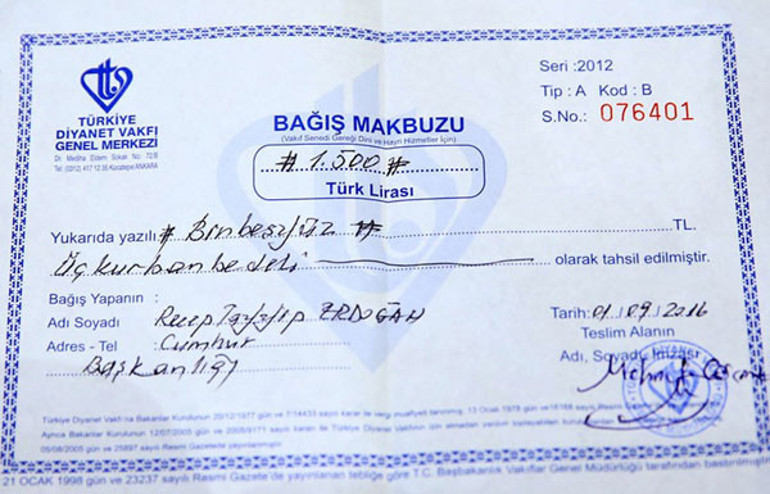 Seri :2012
Tip : A Kod : B
S.No.: 076401
TÜRKİYE
DİYANET VAKFI
GENEL MERKEZİ
Dr. Mediha Eldem Sokak No: 72/B
Tel: (0312) 417 12 35 Kocatepe ANKARA
BAĞIŞ MAKBUZU
(Vakıf Senedi Gereği Dini ve Hayri Hizmetler İçin)
# 1.500 #
Türk Lirası
Yukarıda yazılı # Binbeşyüz # TL.
Üç kurban bedeli olarak tahsil edilmiştir.
Bağış Yapanın :
Adı Soyadı Recep Tayyip ERDOĞAN
Adres - Tel : Cumhur
Başkanlığı
Tarih: 01/09/2016
Teslim Alanın
Adı, Soyadı, İmzası
Mehmet
Türkiye Diyanet Vakfı'na Bakanlar Kurulunun 20/12/1977 gün ve 7/14433 sayılı kararı ile vergi muafiyeti tanınmış, 13 Ocak 1978 gün ve 16168 sayılı Resmi
Ayrıca Bakanlar Kurulunun 12/07/2005 gün ve 2005/9171 sayılı kararı ile Türkiye Diyanet Vakfının izin almadan yardım
05/08/2005 gün ve 25897 sayılı Resmi Gazete'de yayınlanmıştır.
21 OCAK 1998 gün ve 23237 sayılı Resmi Gazete'de yayınlanan tebliğe göre T.C. Başbakanlık Vakıflar Genel Müdürlüğü tarafından bastırılmıştır.